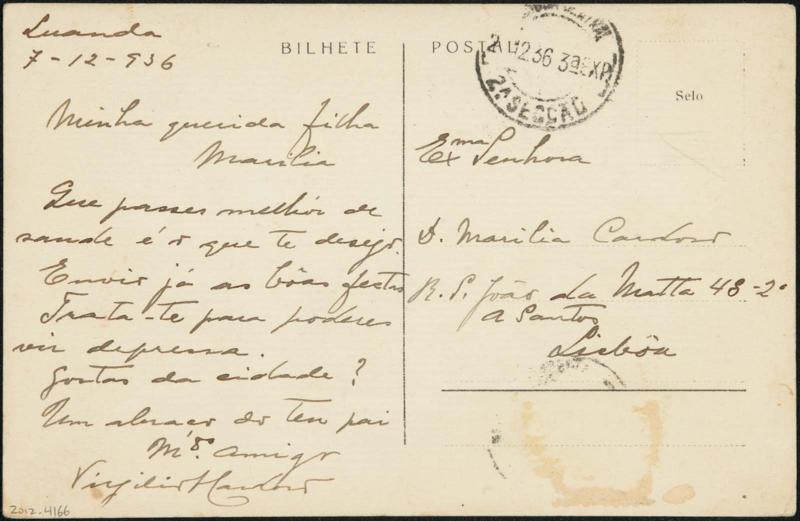 Luanda
7-12-936
BILHETE POSTAL
Minha querida filha
Marilia
Que passes melhór de
saude é o que te desejo.
Envio já as bôas festas
Trata-te para poderes
vir depressa.
Gostas da cidade?
Um abraço do teu pai
Mto amigo
Virgilio Cardoso
2012-4166
12 36 3ª EXP
2ª SECÇÃO
Selo
Exma Senhora
D. Marilia Cardoso
R. S. João da Matta 48-2º
A Santos
Lisbôa